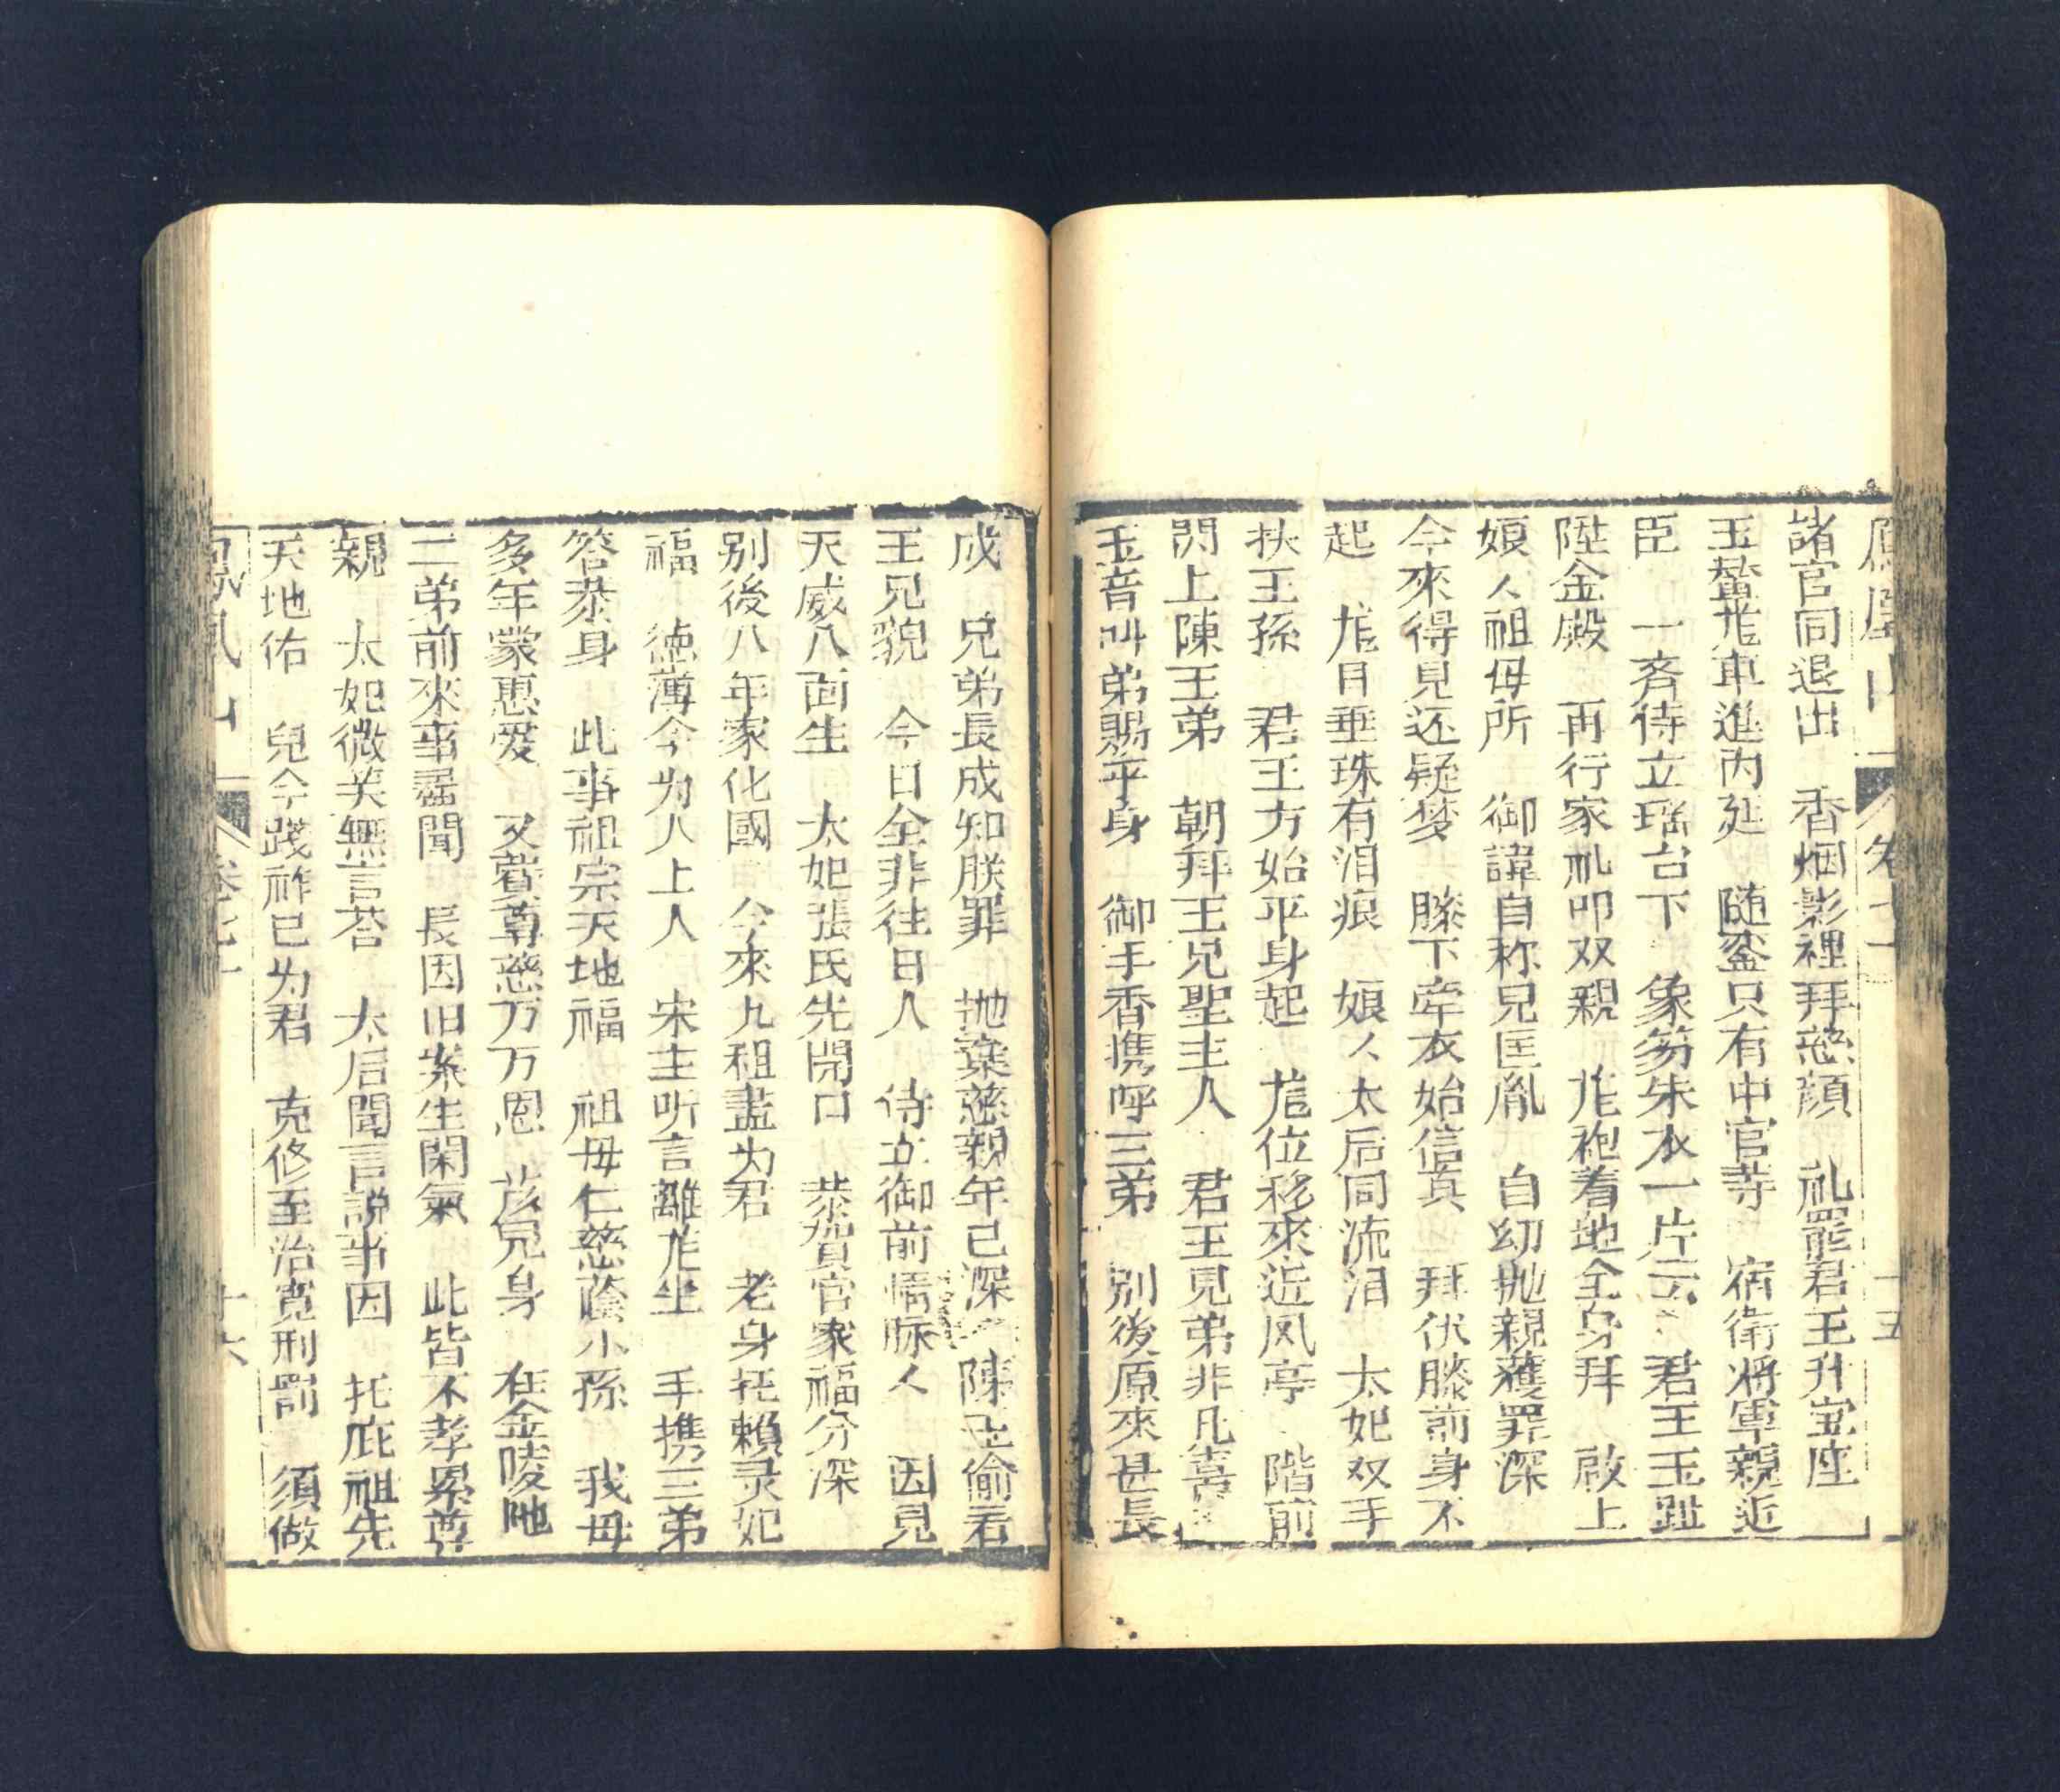 鳳凰山 卷七十 十五
諸官同退出 香烟影裡拜慈顔 礼罷君王升宝座
玉輦尨車進內廷 随鑾只有中官寺 宿衛將軍親近
臣 一斉侍立瑶台下 象笏朱衣一片云 君王玉趾
陞金殿 再行家礼叩双親 尨袍着地全身拜 啟上
娘人祖母所 御諱自称兄匡胤 自幼抛親蘧罪深
今來得見还疑夢 膝下牵衣始信真 拜伏膝前身不
起 尨目垂珠有泪痕 娘人太后同流泪 太妃双手
扶王孫 君王方始平身起 尨位移來近凤亭 階前
閃上陳王弟 朝拜王兄聖主人 君王見弟非凡喜
玉音呌弟賜平身 御手香携呼三弟 别後原來甚長
成 兄弟長成知朕罪 抛棄慈親年已深 陳王偷看
王兄貌 今日全非往日人 侍立御前情脉人 因見
天威八面生 太妃張氏先開口 恭賀官家福分深
别後八年家化國 今來九祖盡为君 老身托賴灵妃
福 德薄今为人上人 宋主听言離尨坐 手携三弟
答恭身 此事祖宗天地福 祖毋仁慈蔭小孫 我毋
多年蒙惠爱 又蒙尊慈万万恩 孩兒身 在金陵地
二弟前來事盡聞 長因旧案生閑氣 此皆不孝累尊
親 太妃微笑無言荅 太后聞言說事因 托庇祖先
天地佑 兒今踐祚已为君 克修至治寬刑罰 須做
鳳凰山 卷七十 十六